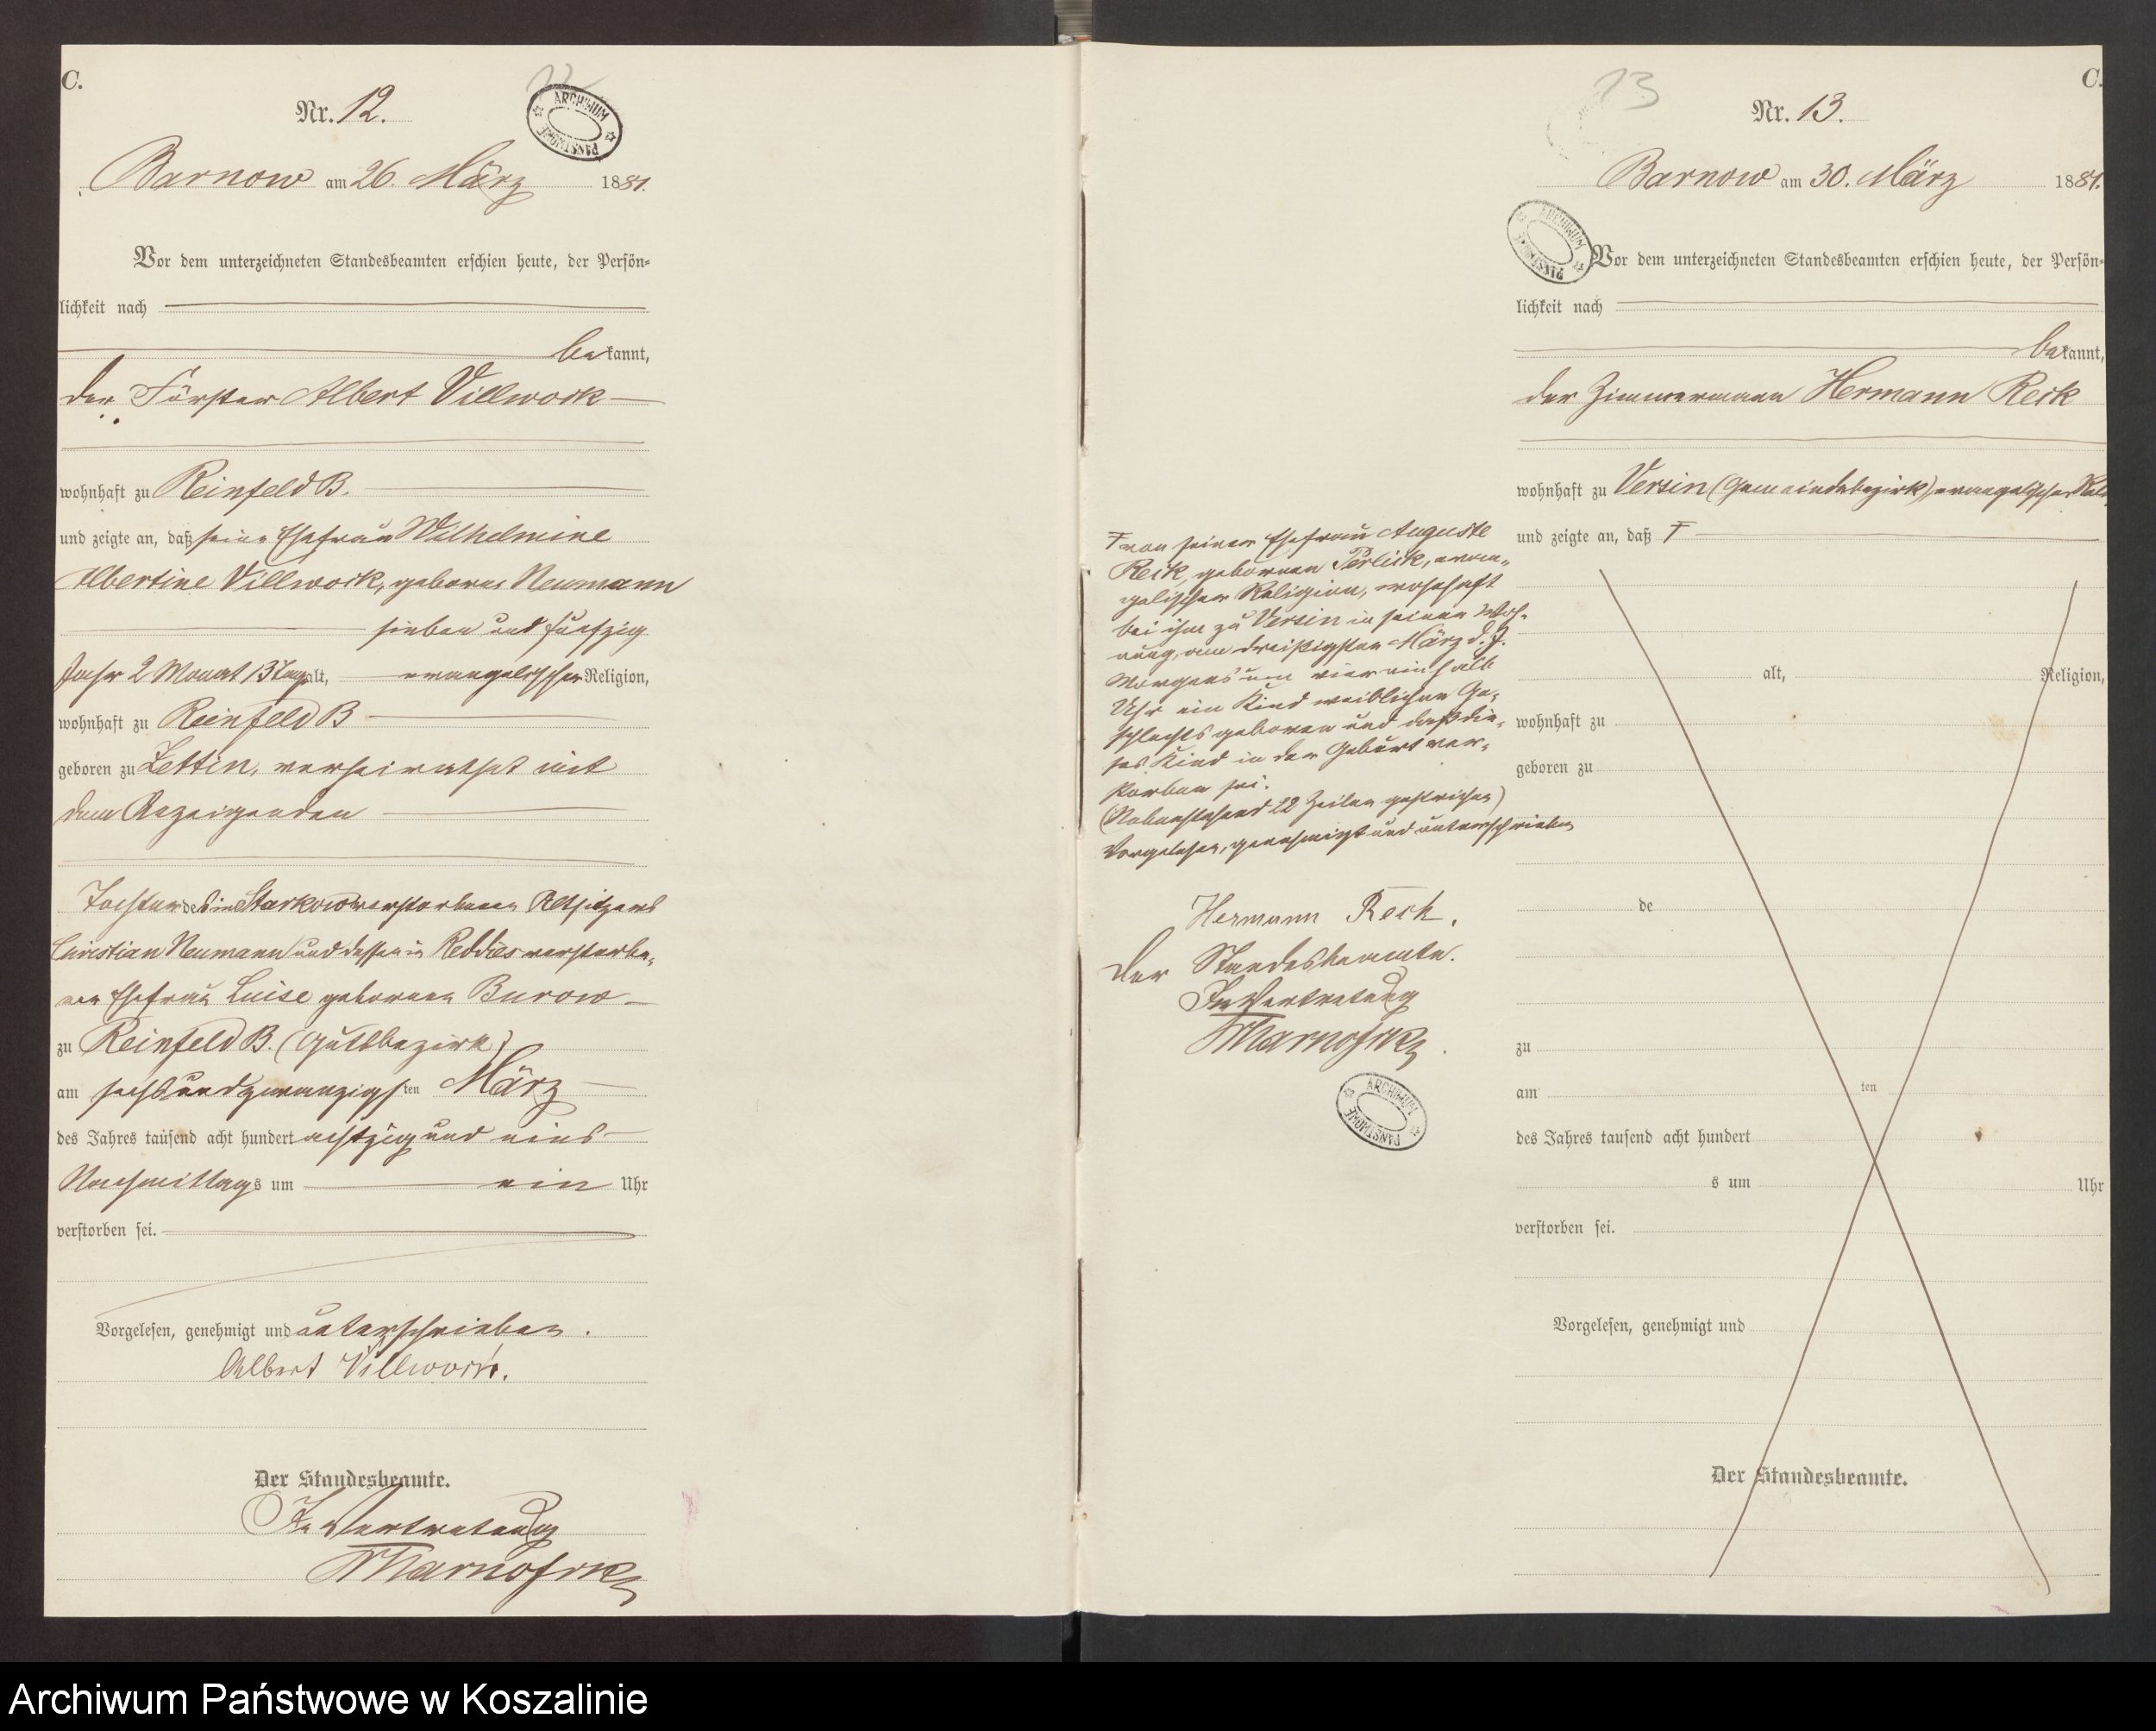 C.
12
Nr. 12.
ARCHIWUM PAŃSTWOWE
Barnow am 26. März 1881.
Vor dem unterzeichneten Standesbeamten erschien heute, der Persön-
lichkeit nach
bekannt,
der Förster Albert Villwock
wohnhaft zu Reinfeld B.
und zeigte an, daß seine Ehefrau Wilhelmine
Albertine Villwock, geborne Neumann
sieben und funfzig
Jahr 2 Monat 13 Tage alt, evangelischer Religion,
wohnhaft zu Reinfeld B
geboren zu Zettin, verheirathet mit
dem Anzeigenden
Tochter des in Starkow verstorbenen Altsitzers
Christian Neumann und dessen in Reddies verstorbe-
nen Ehefrau Luise gebornen Burow
zu Reinfeld B. (Gutsbezirk)
am sechsundzwanzigsten März
des Jahres tausend acht hundert achtzig und eins
Nachmittags um ein Uhr
verstorben sei.
Vorgelesen, genehmigt und unterschrieben.
Albert Villwock.
Der Standesbeamte.
In Vertretung
C.
13
Nr. 13.
Barnow am 30. März 1881.
ARCHIWUM PAŃSTWOWE
Vor dem unterzeichneten Standesbeamten erschien heute, der Persön-
lichkeit nach
bekannt,
der Zimmermann Hermann Reck
wohnhaft zu Versin (Gemeindebezirk) evangelischer Rel.
und zeigte an, daß F
F von seiner Ehefrau Auguste
Reck, gebornen Perlick, evan-
gelischer Religion, wohnhaft
bei ihm zu Versin in seiner Woh-
nung, am dreißigsten März d. J.
Morgens um vier einhalb
Uhr ein Kind weiblichen Ge-
schlechts geboren und daß die-
ses Kind in der Geburt ver-
storben sei.
(Nebenstehend 22 Zeilen gestrichen)
Vorgelesen, genehmigt und unterschrieben
Hermann Reck.
Der Standesbeamte.
In Vertretung
ARCHIWUM PAŃSTWOWE
alt, Religion,
wohnhaft zu
geboren zu
de
zu
am ten
des Jahres tausend acht hundert
s um Uhr
verstorben sei.
Vorgelesen, genehmigt und
Der Standesbeamte.
Archiwum Państwowe w Koszalinie